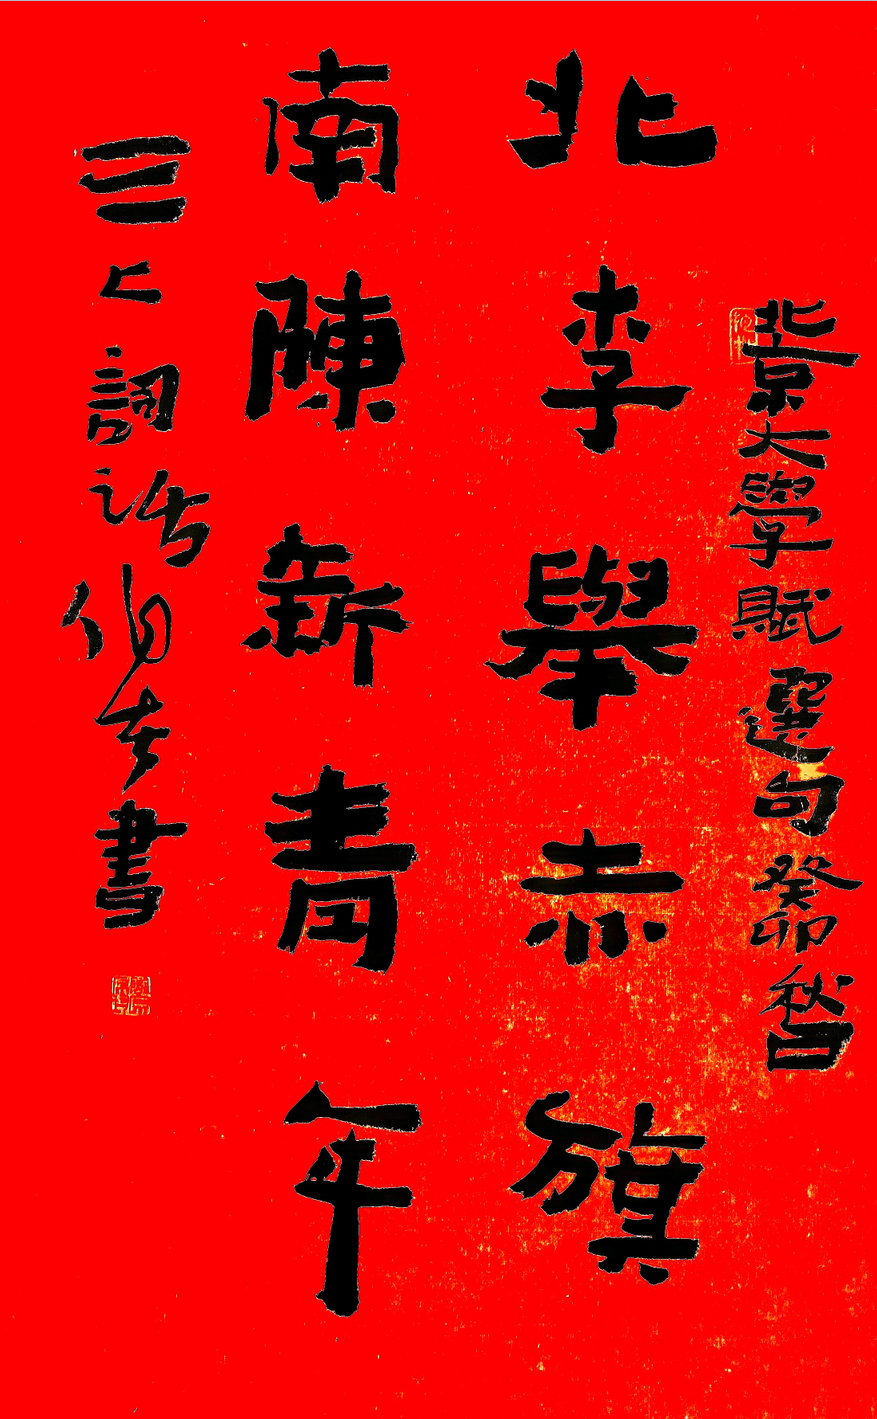 北京大學賦選句癸卯秋日
北李舉赤旗
南陳新青年
詞話
書